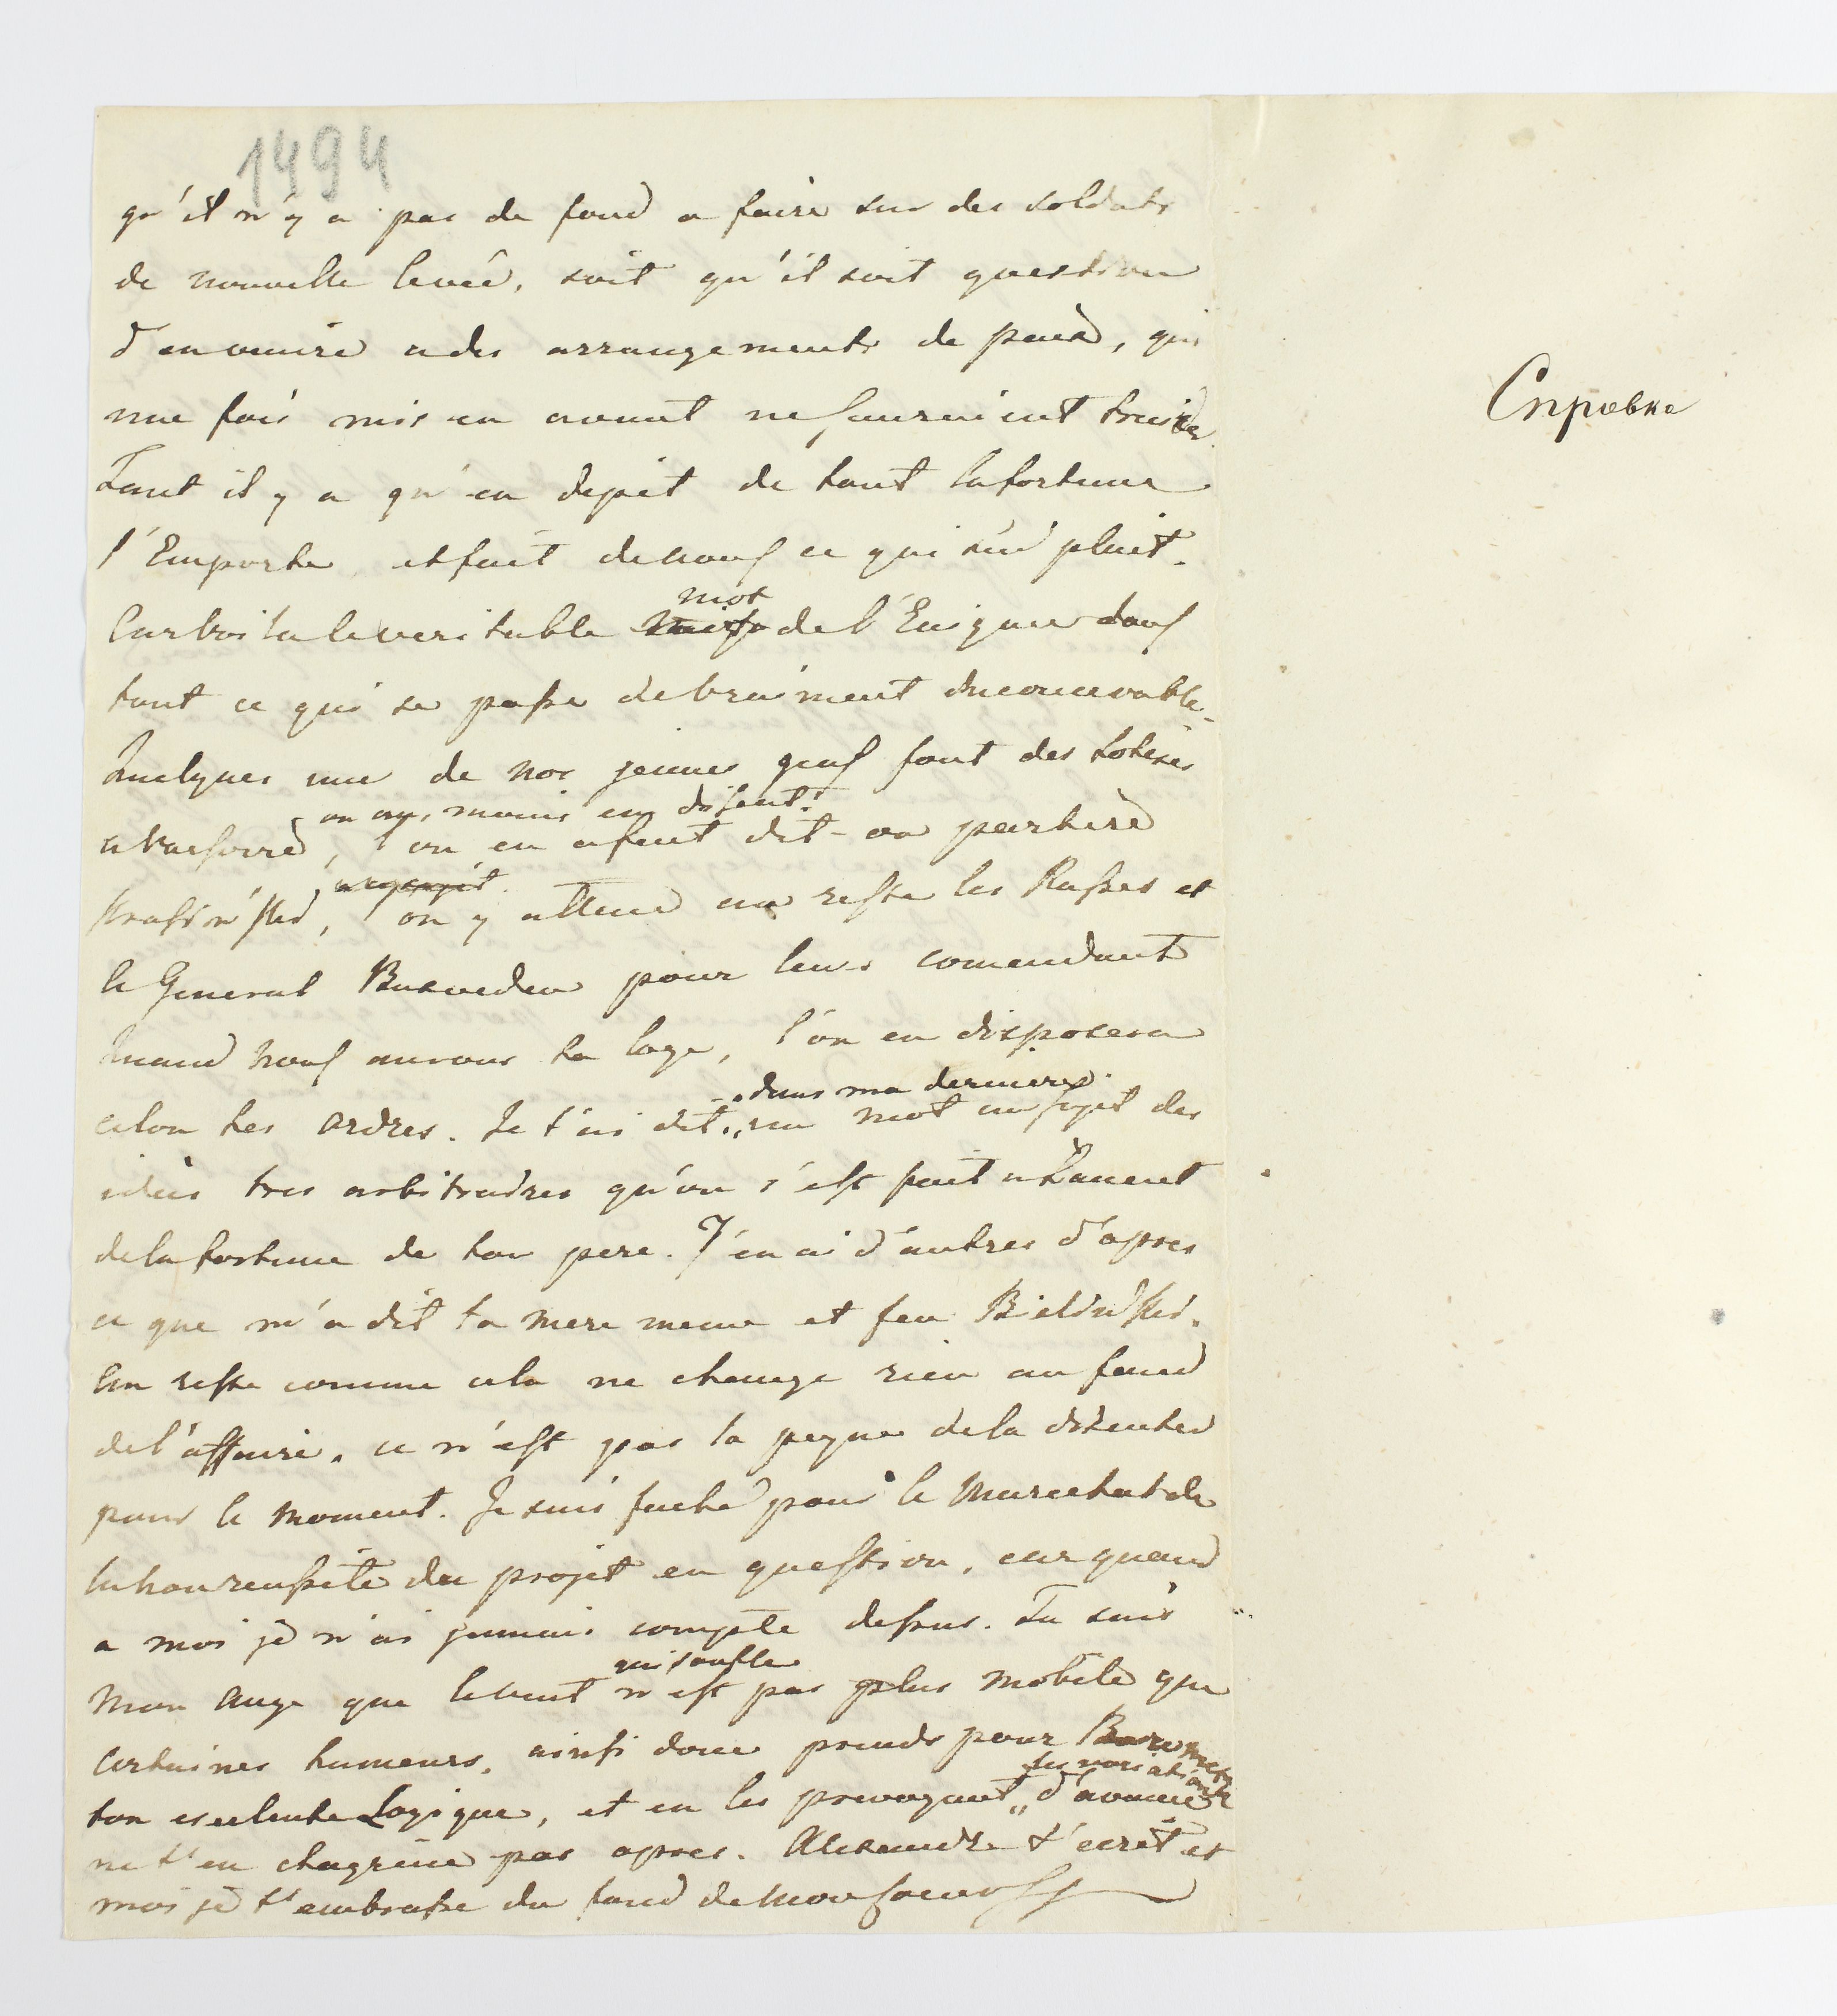 1494
qu'il n'y a pas de fond a faire sur des soldats
de nouvelle levée, soit qu'il soit question
d'en venire a des arrangements de paix, qui
une fois mis en avant ne sauraient
Tant il y a qu'en depit de tout la fortune
l'Emporte et fait de nous ce qui lui plait.
Car voila le veritable mot de l'Enigme dans
tout ce qui se passe de vraiment inconcevable.
Quelques uns de nos jeunes gens font des sotises
a Varsovie, l'on en a fait dit-on partire
on au moins en disent.
Krasinski, l'on y attend au reste les Russes et
le General Buxveden pour leur comendant
Quand nous aurons ta loge, l'on en disposera
selon tes ordres. Je t'ai dit un mot au sujet des
dans ma derniere
idées tres arbitraires qu'on s'est fait a Lancut
de la fortune de ton pere. J'en ai d'autres d'apres
ce que m'a dit ta mere meme et feu Bielinski.
Au reste comme cela ne change rien au fond
de l'affaire, ce n'est pas la peyne de la discuter
pour le moment. Je suis faché pour le Marechal de
la non reussite du projet en question, car quand
a moi je n'ai jamais compté dessus. Tu sais
mon Ange que le vent n'est pas plus mobile que
qui soufle
certaines humeurs, ainsi donc prends pour Barometre
ton exelente Logique, et en les prevoyant d'avance
les variations
ne t'en chagrine pas apres. Alexandre t'ecrit et
moi je t'embrasse du fond de mon coeur
Справка